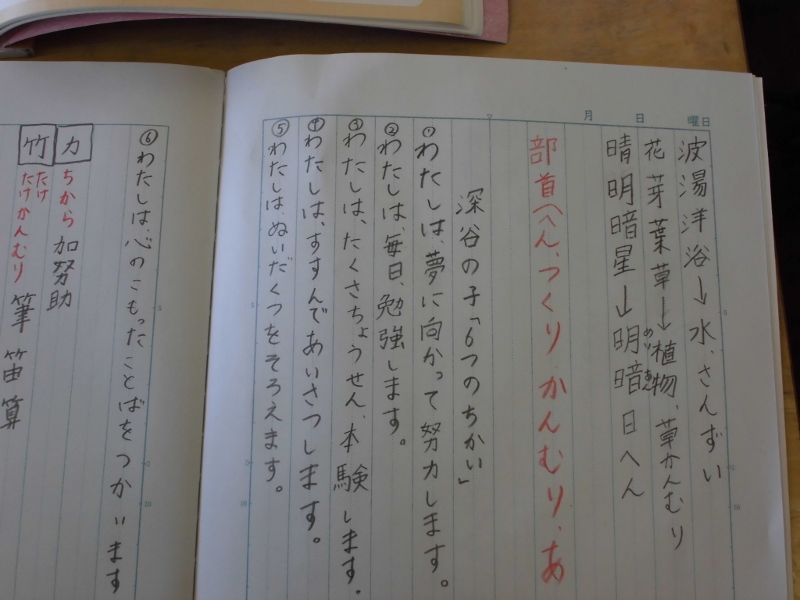 月 日 曜日
波湯洋浴→水、さんずい
花芽葉草→植物、草かんむり
晴明暗星→明暗 日へん
部首(へん、つくり、かんむり、あ
深谷の子「6つのちかい」
①わたしは、夢に向かって努力します。
②わたしは、毎日、勉強します。
③わたしは、たくさちょうせん、本験します。
④わたしは、すすんであいさつします。
⑤わたしは、ぬいだくつをそろえます。
⑥わたしは、心のこもったことばをつかいます
力 ちから 加努助
竹 たけ たけかんむり 筆笛算